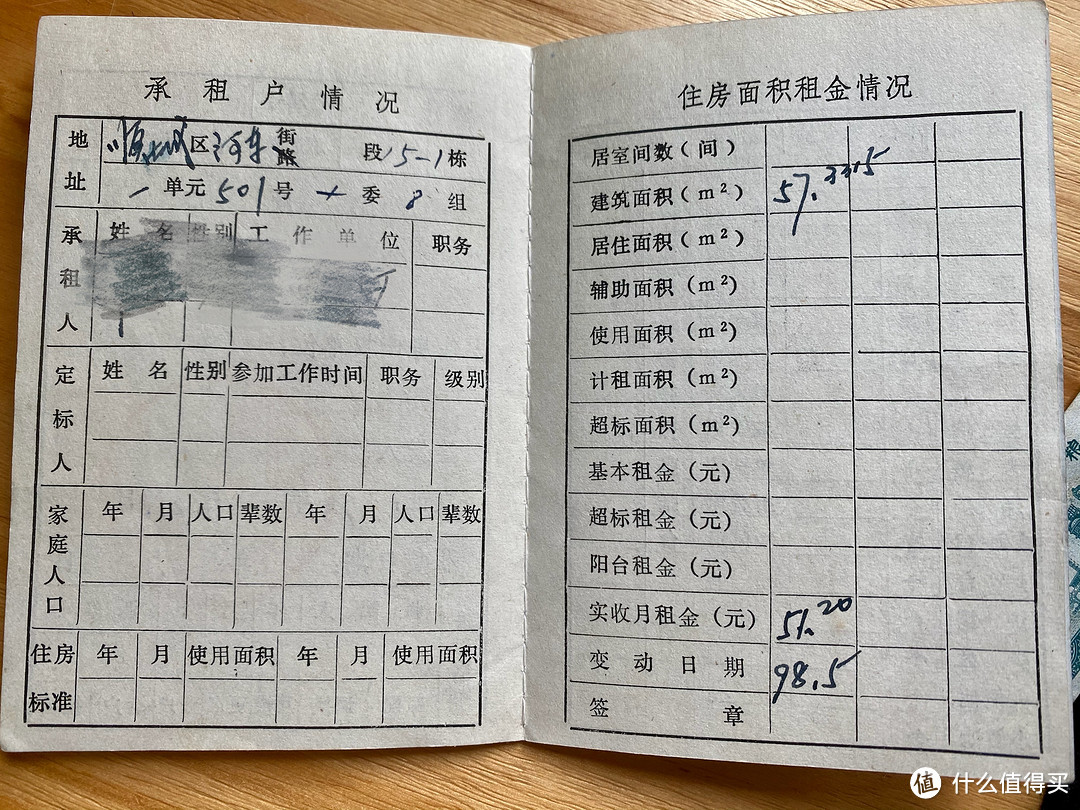 承租户情况
地址
顺城区河东街路 段15-1栋
一单元501号 十委 8组
承租人
姓名 性别 工作单位 职务
定标人
姓名 性别 参加工作时间 职务 级别
家庭人口
年 月 人口 辈数 年 月 人口 辈数
住房标准
年 月 使用面积 年 月 使用面积
住房面积租金情况
居室间数(间)
建筑面积(m²) 57.3315
居住面积(m²)
辅助面积(m²)
使用面积(m²)
计租面积(m²)
超标面积(m²)
基本租金(元)
超标租金(元)
阳台租金(元)
实收月租金(元) 51.20
变动日期 98.5
签章
值 什么值得买